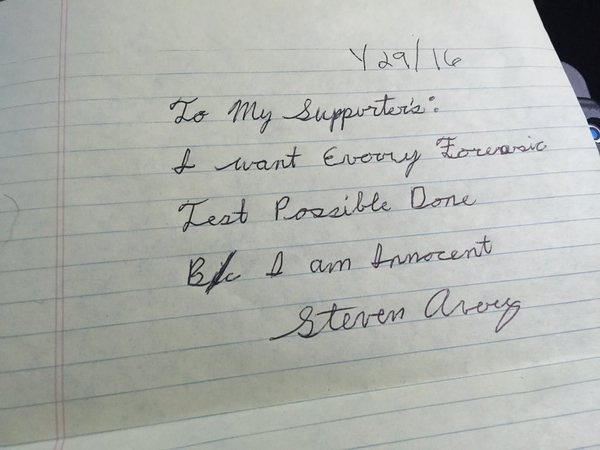 29/16
To My Supporter's:
I want Every Forensic
Test Possible Done
B/c I am Innocent
Steven Avery